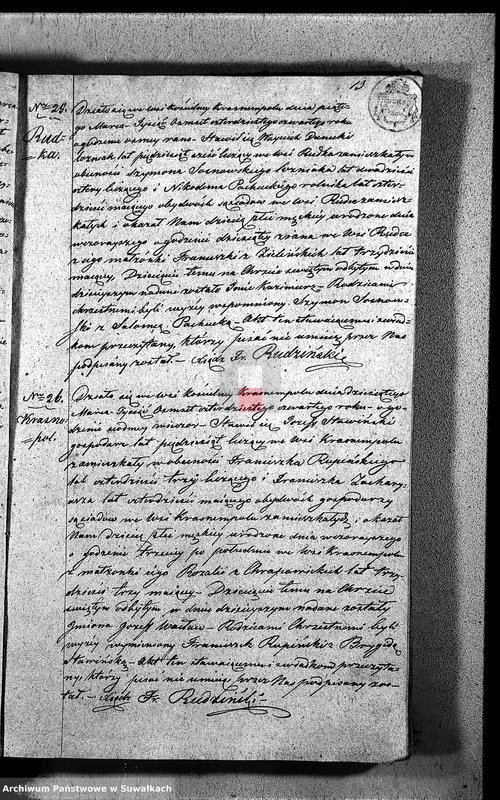 13
Nro 25.
Rud-
ka.
Działo się we Wsi Kościelney Krasnempolu dnia piąte-
go Marca Tysiąc Osmset czterdziestego czwartego roku
o godzinie osmey rano. Stawił się Woyciech
lat pięćdziesiąt sześć liczący we Wsi Rudka zamieszkały w
obecności Szymona Sosnowskiego lat dwadzieścia
cztery liczącego i Nikodema Pachuckiego rolnika lat czter-
dzieści maiącego obydwóch sąsiadów we Wsi Rudce zamiesz-
kałych i okazał Nam dziecię płci męskiey urodzone dnia
wczorayszego o godzinie dziesiątey z rana we Wsi Rudce
z iego małżonki Franciszki z Zielińskich lat trzydzieści
maiącey. Dziecięciu temu na Chrzcie świętym odbytym w dniu
dzisieyszym nadane zostało Imie Kazimierz. Rodzicami
chrzestnemi byli wyżey wspomniony Szymon Sosnow-
ski z Salomeą Pachucką. Akt ten stawaiącemu i świad-
kom przeczytany, którzy pisać nie umieią przez Nas
podpisany został. – Xiądz Fr. Rudziński
Nro 26.
Krasno-
pol.
Działo się we Wsi Kościelney Krasnempolu dnia dziesiątego
Marca Tysiąc Osmset czterdziestego czwartego roku o go-
dzinie siodmey wieczor. Stawił się Jozef
gospodarz lat pięćdziesiąt liczący we Wsi Krasnempolu
zamieszkały w obecności Franciszka Rupińskiego
lat czterdzieści trzy liczącego i Franciszka Zachary-
asza lat czterdzieści maiącego obydwóch gospodarzy
sąsiadów we Wsi Krasnempolu zamieszkałych i okazał
Nam dziecię płci męskiey urodzone dnia wczorayszego
o godzinie trzeciey po południu we Wsi Krasnempolu
z małżonki iego Rozalii z Chrapowickich lat trzy-
dzieści trzy maiącey. Dziecięciu temu na Chrzcie
świętym odbytym w dniu dzisieyszym nadane zostały
Imiona Jozef Wacław. Rodzicami Chrzestnemi byli
wyżey wspomniony Franciszek Rupiński z Brygidą
Akt ten stawaiącemu i świadkom przeczyta-
ny, którzy pisać nie umieią przez Nas podpisany zos-
tał. – Xiądz Fr. Rudziński
Archiwum Państwowe w Suwałkach